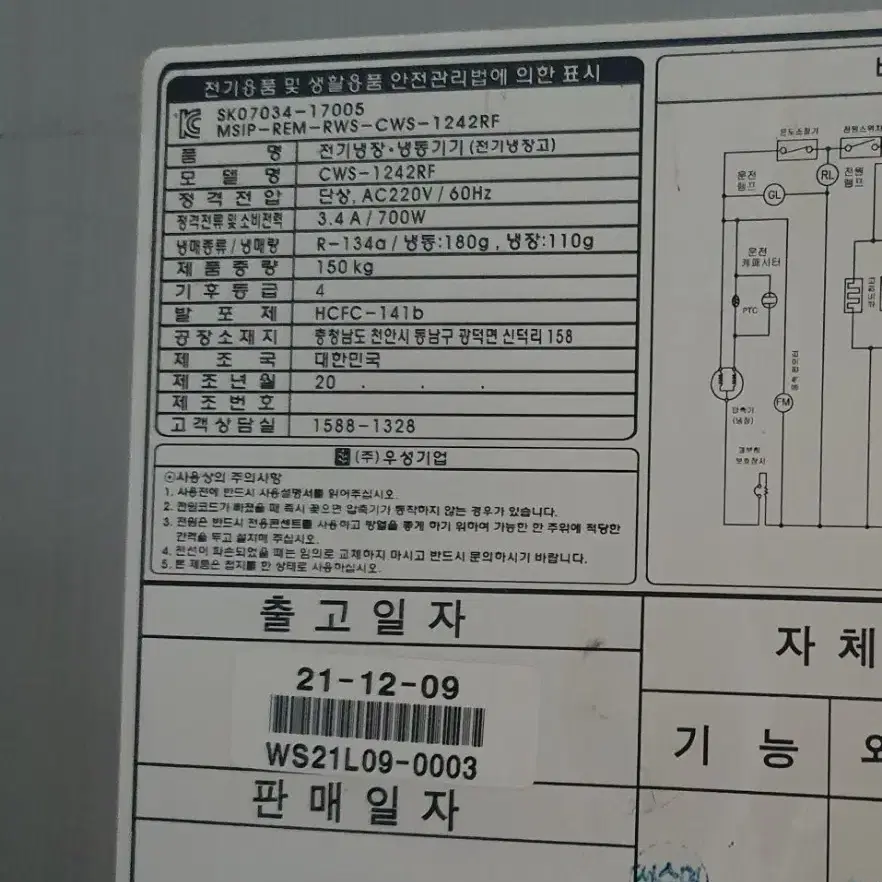 전기용품 및 생활용품 안전관리법에 의한 표시
SK07034-17005
MSIP-REM-RWS-CWS-1242RF
품 명 전기냉장·냉동기기 (전기냉장고)
모 델 명 CWS-1242RF
정 격 전 압 단상, AC220V / 60Hz
정격전류 및 소비전력 3.4 A / 700W
냉매종류 / 냉매량 R-134a / 냉동:180g , 냉장:110g
제 품 중 량 150 kg
기 후 등 급 4
발 포 제 HCFC-141b
공 장 소 재 지 충청남도 천안시 동남구 광덕면 신덕리 158
제 조 국 대한민국
제 조 년 월 20 . . .
제 조 번 호
고 객 상 담 실 1588-1328
(주)우성기업
⊙사용상의 주의사항
1. 사용전에 반드시 사용설명서를 읽어주십시오.
2. 전원코드가 빠졌을 때 즉시 꽂으면 압축기가 동작하지 않는 경우가 있습니다.
3. 전원은 반드시 전용콘센트를 사용하고 방열을 좋게 하기 위하여 가능한 한 주위에 적당한
간격을 두고 설치해 주십시오.
4. 전선이 파손되었을 때는 임의로 교체하지 마시고 반드시 문의하시기 바랍니다.
5. 본 제품은 접지를 한 상태로 사용하십시오.
온도조절기
전원스위치
운전
램프
GL
RL
전원
램프
운전
캐패시터
PTC
FM
압축기
(냉장)
출 고 일 자
21-12-09
WS21L09-0003
판 매 일 자
자 체
기 능